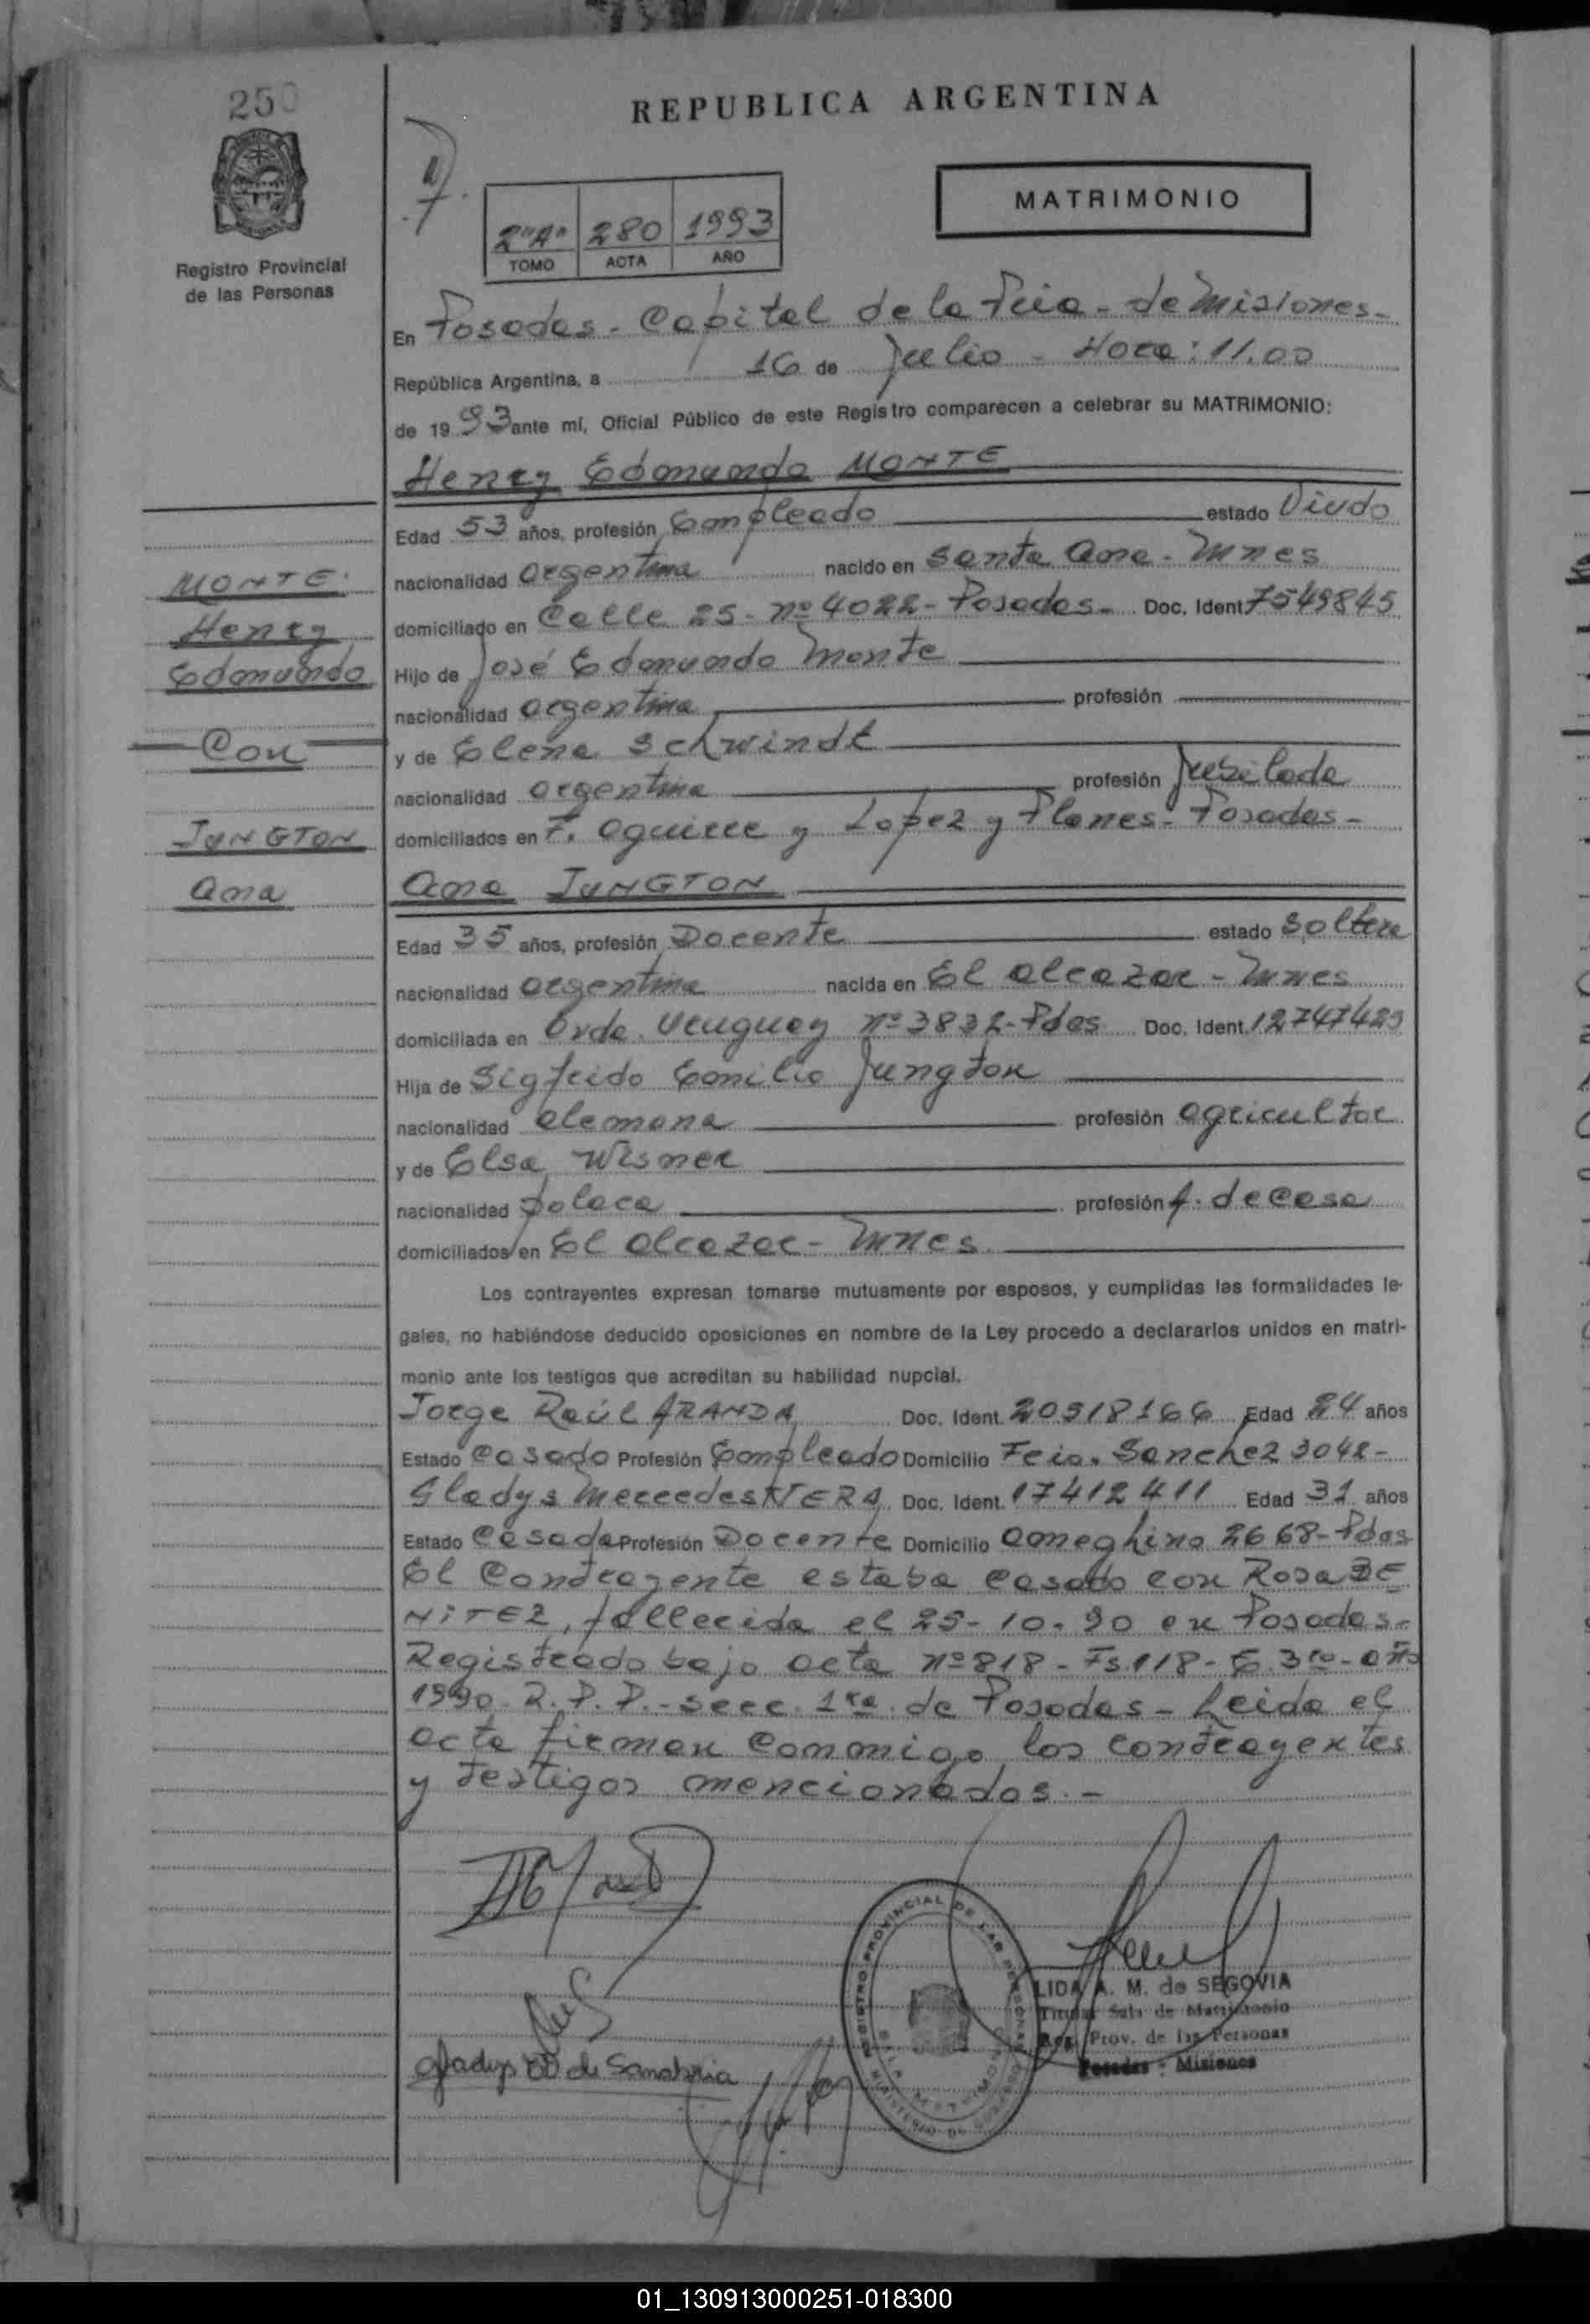 250
REPUBLICA ARGENTINA
MATRIMONIO
2"A" 280 1993
TOMO ACTA AÑO
Registro Provincial
de las Personas
En Posadas - Capital de la Pcia - de Misiones -
República Argentina, a 16 de Julio - Hora: 11.00
de 1993 ante mí, Oficial Público de este Registro comparecen a celebrar su MATRIMONIO:
Henry Edmundo MONTE
Edad 53 años, profesión Empleado estado Viudo
MONTE
Henry
Edmundo
Con
JUNGTON
Ana
nacionalidad argentina nacido en Santa Ana - Mnes
domiciliado en Calle 25 - nº 4022 - Posadas - Doc. Ident 7549845
Hijo de José Edmundo Monte
nacionalidad argentina profesión
y de Elena Schwindt
nacionalidad argentina profesión Jubilada
domiciliados en F. Aguirre y Lopez y Planes - Posadas -
Ana JUNGTON
Edad 35 años, profesión Docente estado Soltera
nacionalidad argentina nacida en El Alcazar - Mnes
domiciliada en Avda. Uruguay nº 3832 - Pdas Doc. Ident. 12747429
Hija de Sigfrido Emilio Jungton
nacionalidad alemana profesión agricultor
y de Elsa Wisner
nacionalidad polaca profesión A. de Casa
domiciliados en El Alcazar - Mnes
Los contrayentes expresan tomarse mutuamente por esposos, y cumplidas las formalidades le-
gales, no habiéndose deducido oposiciones en nombre de la Ley procedo a declararlos unidos en matri-
monio ante los testigos que acreditan su habilidad nupcial.
Jorge Raúl ARANDA Doc. Ident. 20518166 Edad 24 años
Estado Casado Profesión Empleado Domicilio Fcio. Sanchez 3048 -
Gladys Mercedes VERA Doc. Ident. 17412411 Edad 31 años
Estado Casada Profesión Docente Domicilio Ameghino 2668 - Pdas
El Contrayente estaba casado con Rosa BE
NITEZ, fallecida el 25-10-90 en Posadas -
Registrado bajo acta nº 818 - Fs 118 - T. 3ro - año
1990 - R. P. P. - Secc. 1ra. de Posadas - Leida el
acta firman conmigo los contrayentes
y testigos mencionados. -
Gladys de Sanabria
REGISTRO PROVINCIAL DE LAS PERSONAS
LIDA A. M. de SEGOVIA
Titular Sala de Matrimonio
Reg. Prov. de las Personas
Posadas - Misiones
01_130913000251-018300